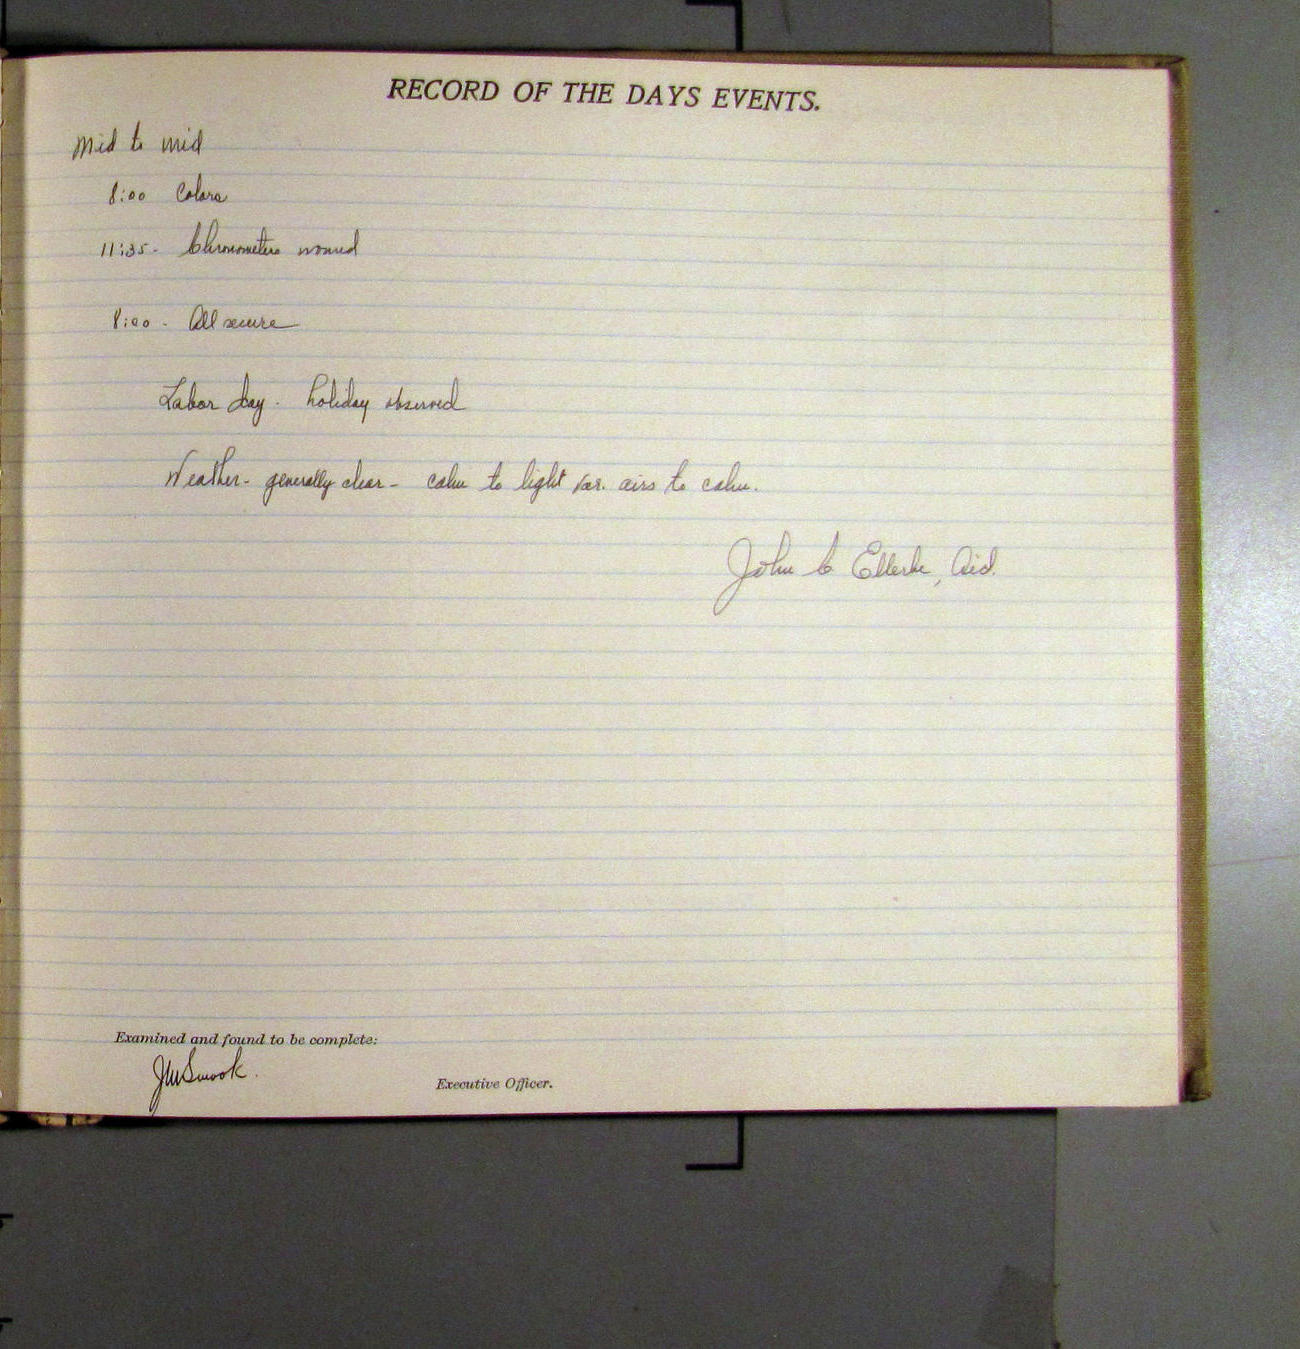 RECORD OF THE DAYS EVENTS.
Mid to mid
8:00 Colors
11:35- Chronometers wound
8:00 - All secure
Labor day - holiday observed
Weather- generally clear - calm to light var. airs to calm.
John C Ellerbe, Aid.
Examined and found to be complete:
JM Smook.
Executive Officer.